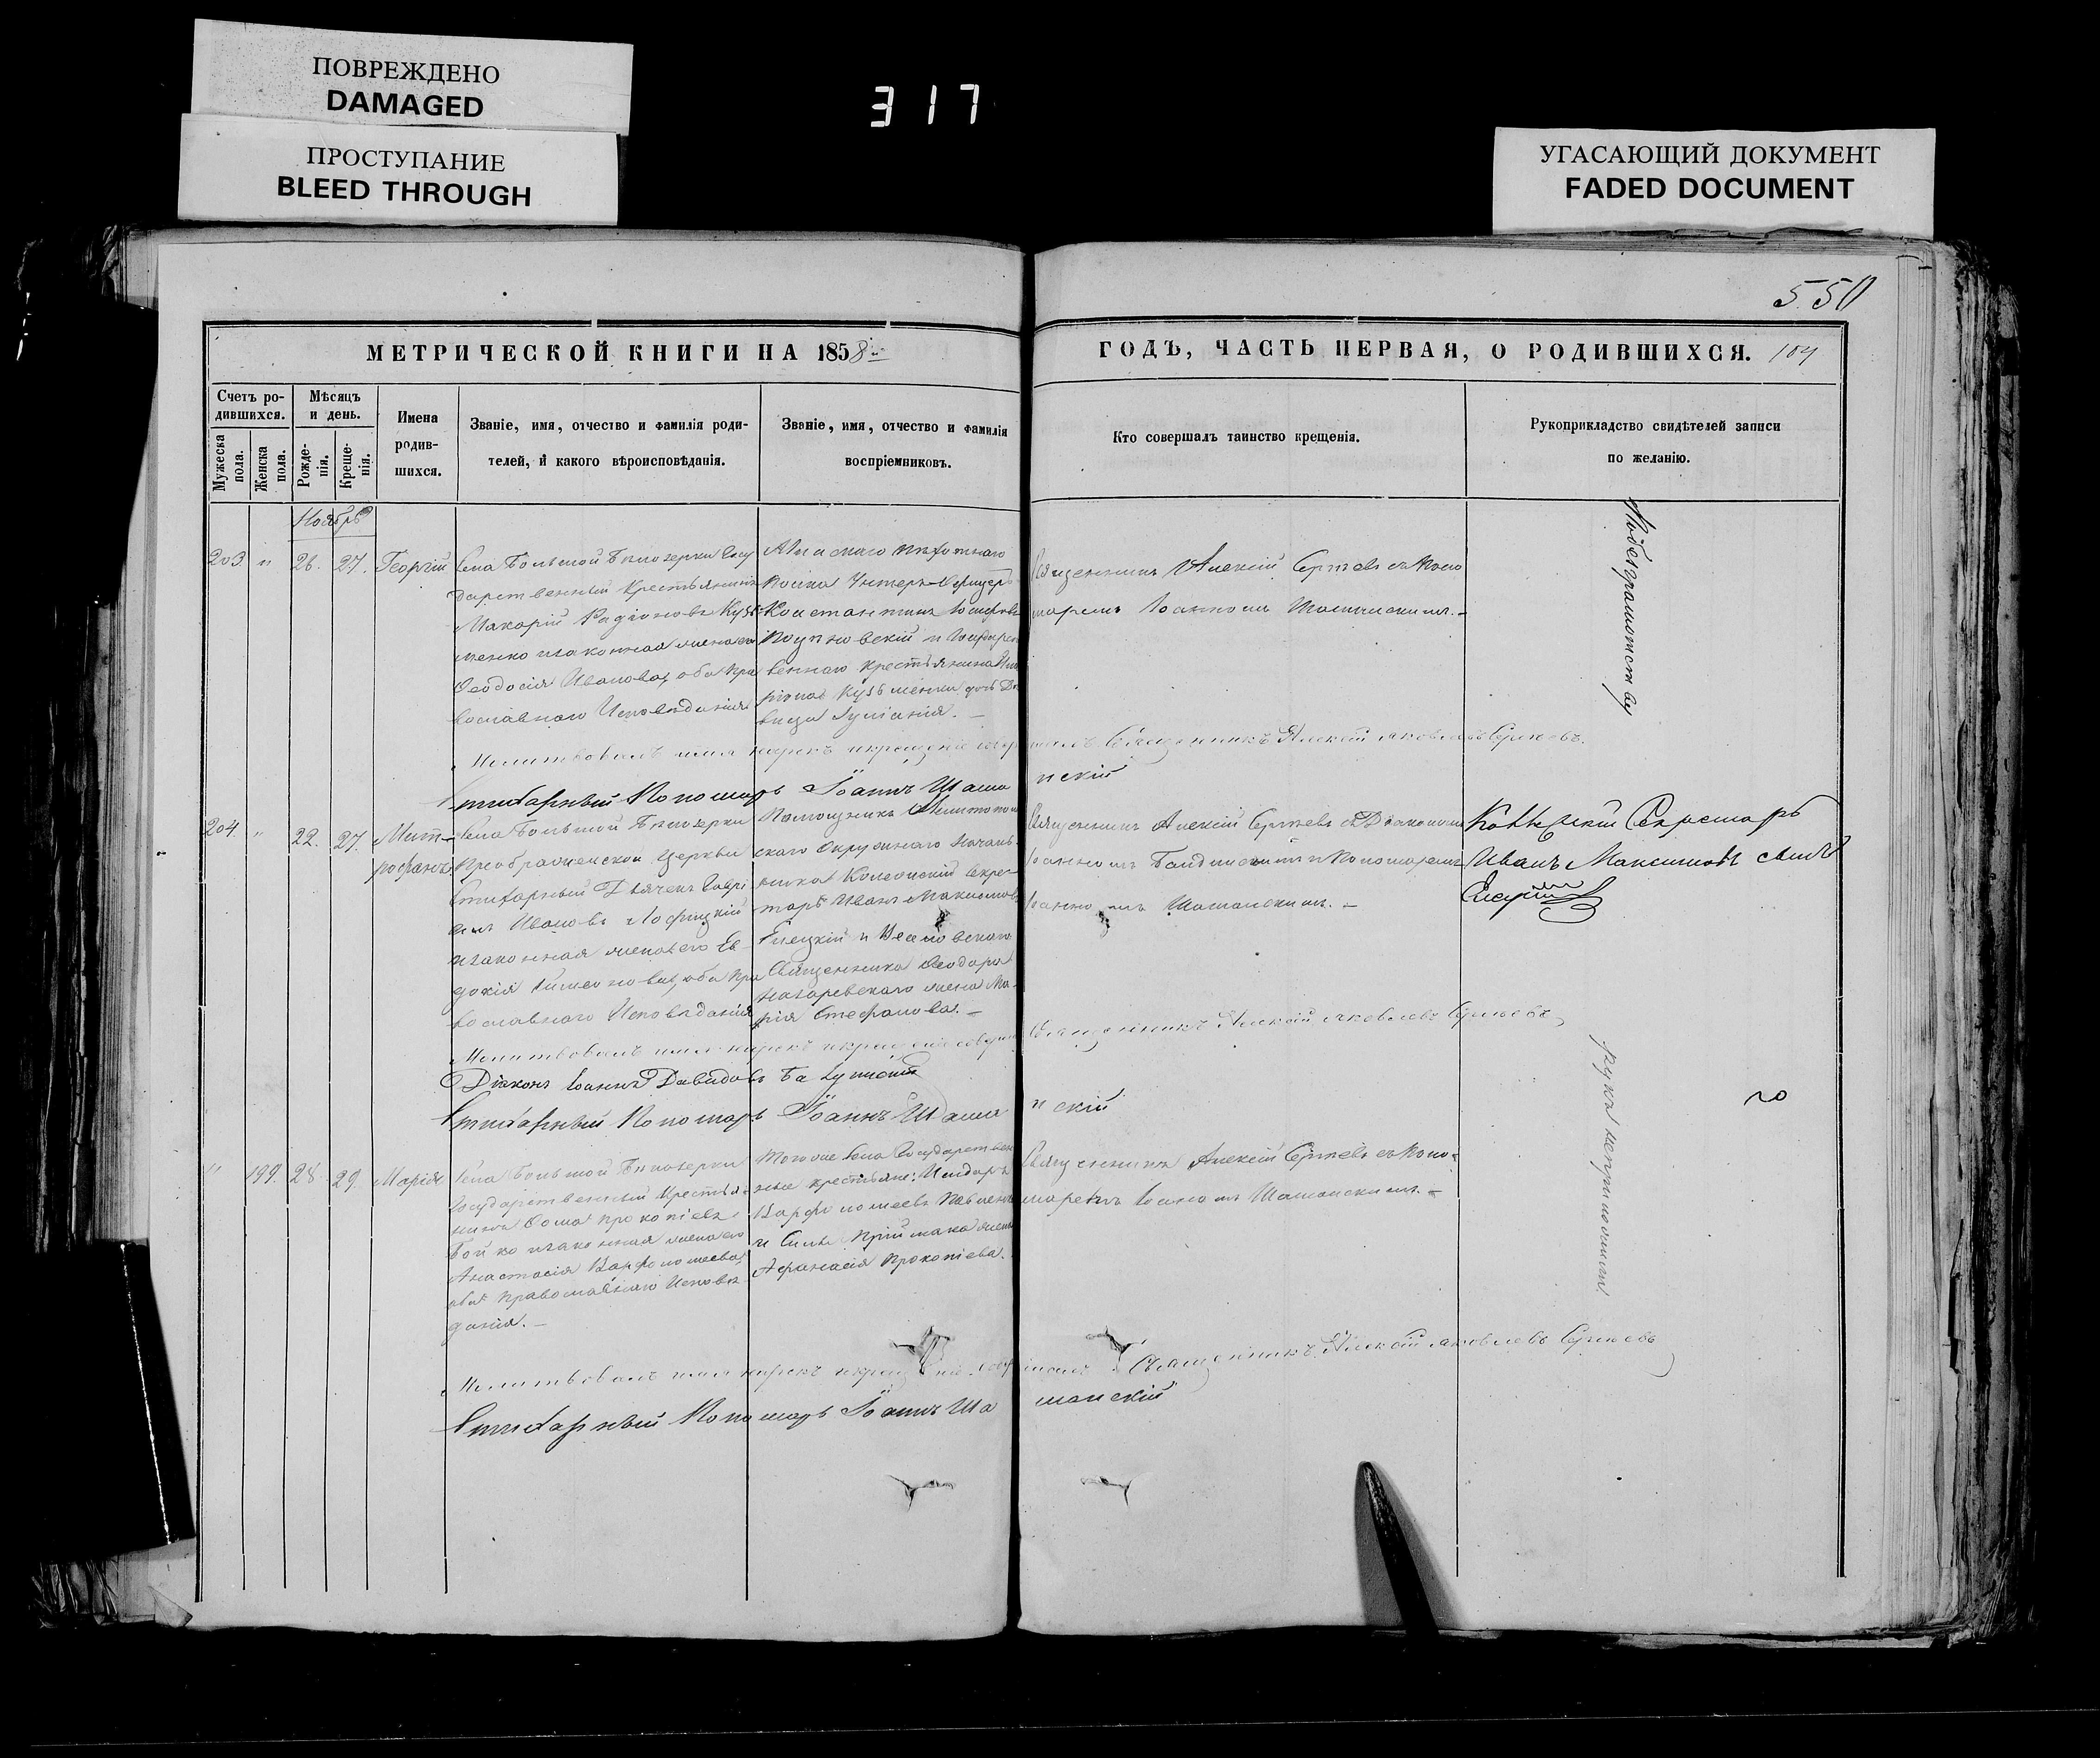 ПОВРЕЖДЕНО
DAMAGED
ПРОСТУПАНИЕ
BLEED THROUGH
317
УГАСАЮЩИЙ ДОКУМЕНТ
FADED DOCUMENT
550
МЕТРИЧЕСКОЙ КНИГИ НА 1858й
ГОДЪ, ЧАСТЬ ПЕРВАЯ, О РОДИВШИХСЯ. 104
Счетъ ро-
дившихся.
Мужеска
пола.
Женска
пола.
Мѣсяцъ
и день.
Рожде-
нія.
Креще-
нія.
Имена
родив-
шихся.
Званіе, имя, отчество и фамилія роди-
телей, и какого вѣроисповѣданія.
Званіе, имя, отчество и фамилія
воспріемниковъ.
Кто совершалъ таинство крещенія.
Рукоприкладство свидѣтелей записи
по желанію.
Ноябрь
203. " 26. 27. Георгій
Села Большой Бѣлозерки Госу
дарственный Крестьянинъ
Макорій Радіоновъ Кузь
менко изаконная жена его
Феодосія Иванова, оба Пра
вославнаго Исповѣданія
пѣхотнаго
Полка Унтеръ-Офицеръ
Константинъ Іосифовъ
и Государст
веннаго крестьянина
Кузьменки дочь Дѣ
вица Іуліанія. —
Священникъ Алексій Сергѣевъ съ Поно
маремъ Іоанномъ Шашанскимъ. —
Молитвовалъ имя нарекъ икрещеніе совершалъ Священникъ Алексій Яковлевъ Сергѣевъ.
Стихарный Пономарь Іоаннъ Шашанскій
204. " 22. 27. Мит-
рофанъ
Села Большой Бѣлозерки
Преображенской Церкви
Стихарный Дьячекъ Гаврі
илъ Ивановъ Лофицкій
изаконная жена его Ев
докія Симеонова, оба Пра
вославнаго Исповѣданія
Помощникъ Мелитополь
скаго Окружнаго Началь
ника Колежскій Секре-
тарь Иванъ Максимовъ
Елецкій и
Священника Феодора
Назаревскаго жена Ма-
рія Стефанова. —
Священникъ Алексій Сергѣевъ съ Діакономъ
Іоанномъ и Пономаремъ
Іоанномъ Шашанскимъ. —
Секретарь
Иванъ Максимовъ сынъ
Молитвовалъ имя нарекъ икрещеніе соверш Священникъ Алексій Яковлевъ Сергѣевъ
Діаконъ Іоаннъ Давидовъ
Стихарный Пономарь Іоаннъ Шашанскій
" 199. 28. 29. Марія
Села Большой Бѣлозерки
Государственный Крестья-
нинъ Фома Прокопіевъ
Бойко изаконная жена его
Анастасія Варфоломеева,
оба Православнаго Исповѣ
данія. —
Тогоже Села Государствен
ные крестьяне:
Варфоломеевъ Павленко
и Силы Приймака жена
Афанасія Прокопіева.
Священникъ Алексій Сергѣевъ съ Поно-
маремъ Іоаномъ Шашанскимъ. —
Молитвовалъ имя нарекъ икрещеніе совершалъ Священникъ Алексій Яковлевъ Сергѣевъ
Стихарный Пономарь Іоаннъ Шашанскій